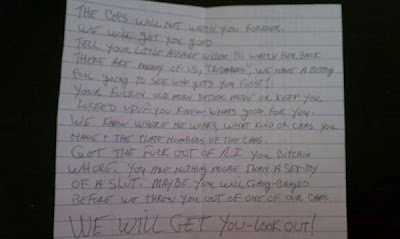 THE COPS WILL NOT WATCH YOU FOREVER.
WE WILL GET YOU GOOD.
TELL YOUR LITTLE ASSHOLE SISTER TO WATCH HER BACK
THERE ARE MANY OF US, "CRUSADERS", WE HAVE A BETTING
POOL GOING TO SEE WHO GETS YOU FIRST!
YOUR FUCKIN OLD MAN BETTER MOVE OR KEEP YOU
LOCKED UP IF YOU KNOW WHATS GOOD FOR YOU.
WE KNOW WHERE HE WORKS, WHAT KIND OF CARS YOU
HAVE & THE PLATE NUMBERS OF THE CARS.
GET THE FUCK OUT OF R.I YOU BITCHIN
WHORE. YOU ARE NOTHING MORE THAN A SEX-TOY
OF A SLUT. MAYBE YOU WILL GANG-BANGED
BEFORE WE THROW YOU OUT OF ONE OF OUR CARS
WE WILL GET YOU-LOOK OUT!